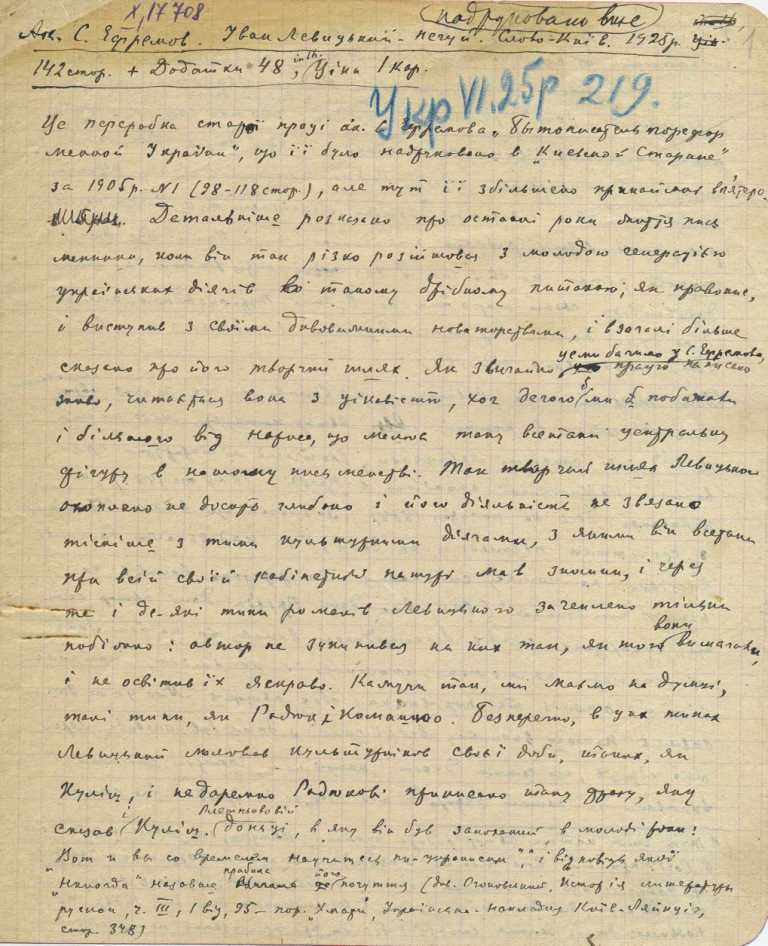 X, 17708
надруковано вже
1
Ак. С. Ефремов. Іван Левицький-Нечуй. Слово-Київ. 1925р.
142 стор. + Додатки 48, in 16, Ціна 1 кар.
Укр VI.25р 219.
Це переробка старої праці ак. С. Ефремова „Бытописатель порефор
менной Украйни", що її було надруковано в „Киевской Старине"
за 1905р. №1 (98-118 стор.), але тут її збільшено принаймні вп'ятеро.
Детальніше розказано про останні роки життя пись
менника, коли він так різко розійшовся з молодою генерацією
українських діячів в такому дрібному питанню, як правопис,
і виступив з своїми дивовижними новаторствами, і взагалі більше
сказано про його творчий шлях. Як звичайно
це ми бачимо у С. Ефремова,
праця написана
читається вона з цікавістю, хоч дечого б ми побажали
і більшого від нариса, що малює таку всетаки центральну
фігуру в нашому письменстві. Так творчий шлях Левицького
охоплено не досить глибоко і його діяльність не звязано
тісніше з тими культурними діячами, з якими він всетаки
при всій своїй кабінетній натурі мав зносини, і через
те і де-які типи романів Левицького зачеплено тільки
побіжно: автор не зупинився на них так, як того вони вимагали,
і не освітив їх яскраво. Кажучи так, ми маємо на думці,
такі типи, як Радюк і Комашко. Безперечно, в цих типах
Левицький малював культурників своєї доби, таких, як
Куліш, і недаремно Радюкові приписано таку фразу, яку
сказав Куліш Плетньововій доньці, в яку він був закоханий в молоді роки:
„Вот и вы со временем научитесь по-украински", і відповідь якої
„Никогда" назавше його почуття (див. Огоновський, История литературы
руской, ч. III, 1 від, 95 – пор. „Хмари", Українська накладня Київ-Ляйпціг,
стор. 348)